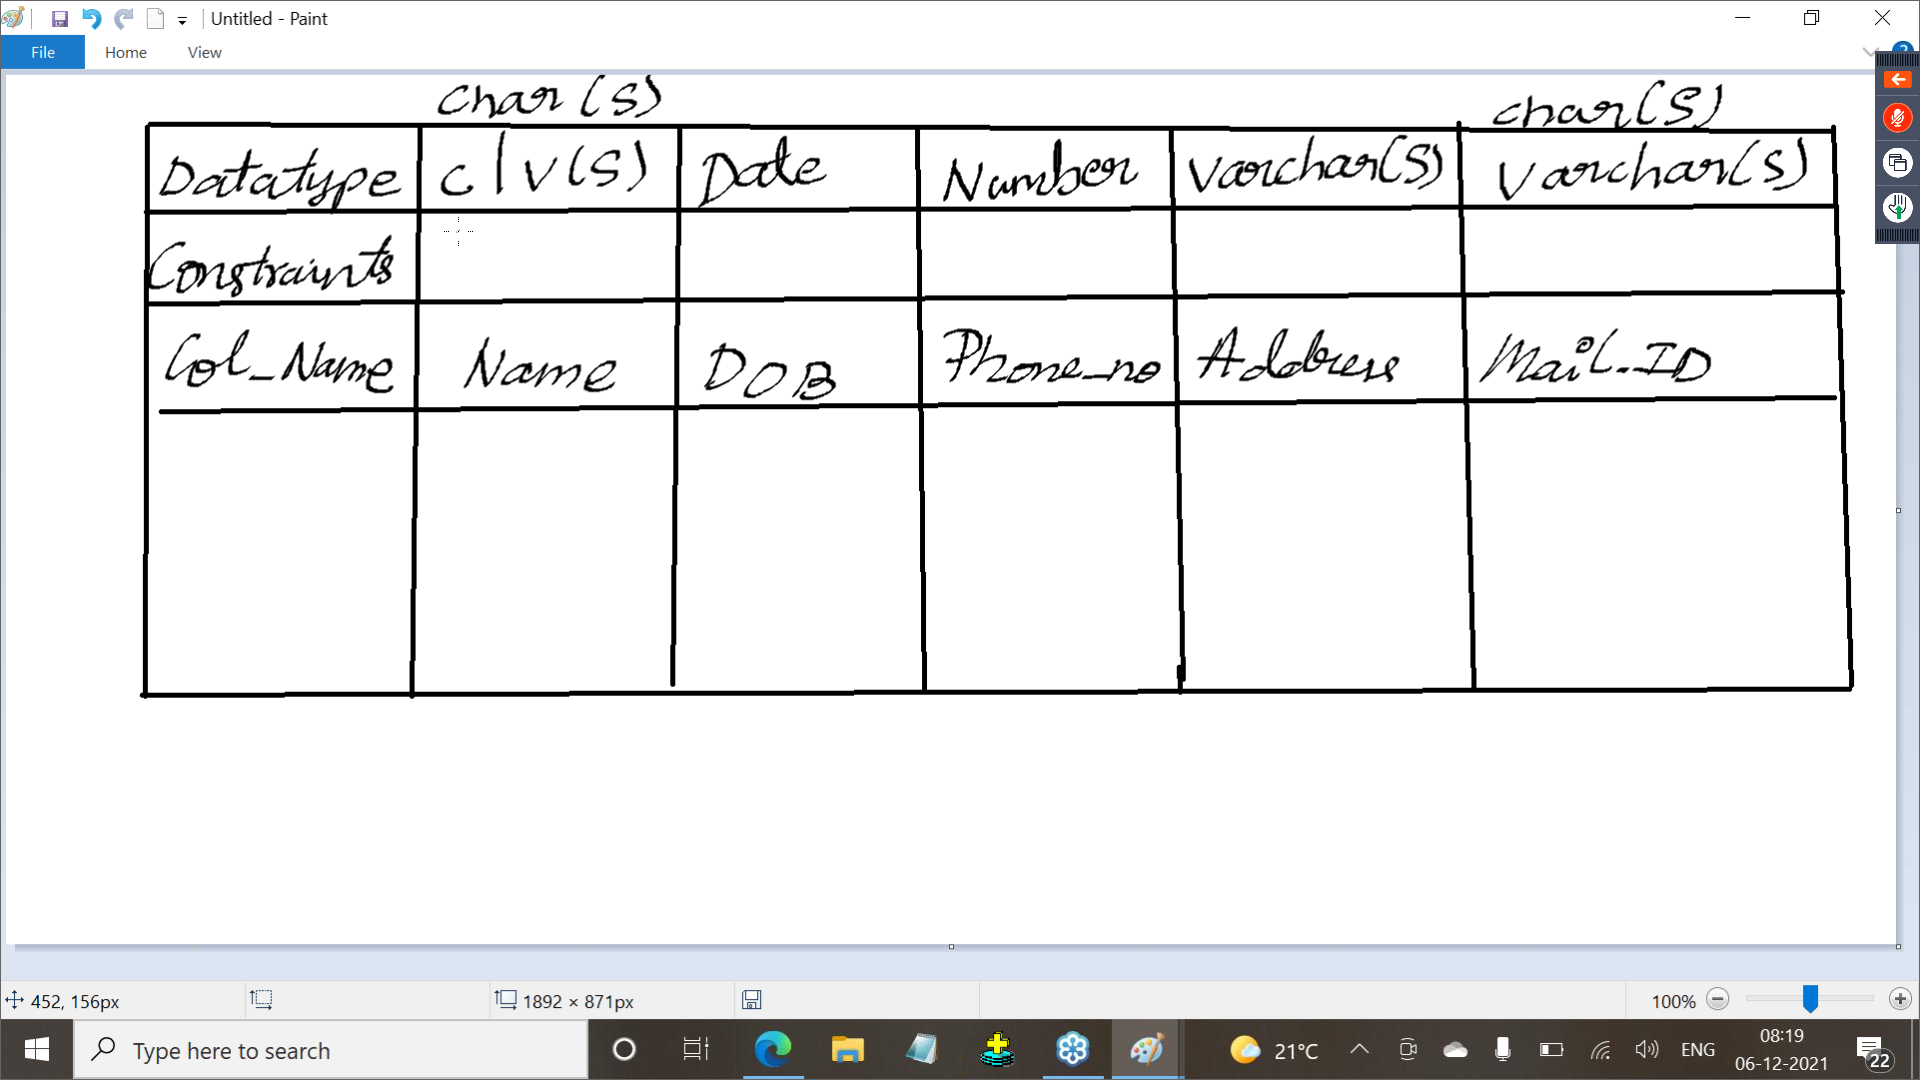 Untitled - Paint
File Home View
char(s) char(s)
Datatype c/v(s) Date Number Varchar(s) Varchar(s)
Constraints
Col_Name Name DOB Phone_no Address Mail_ID
452, 156px 1892 × 871px 100%
Type here to search 21°C ENG 08:19
06-12-2021 22